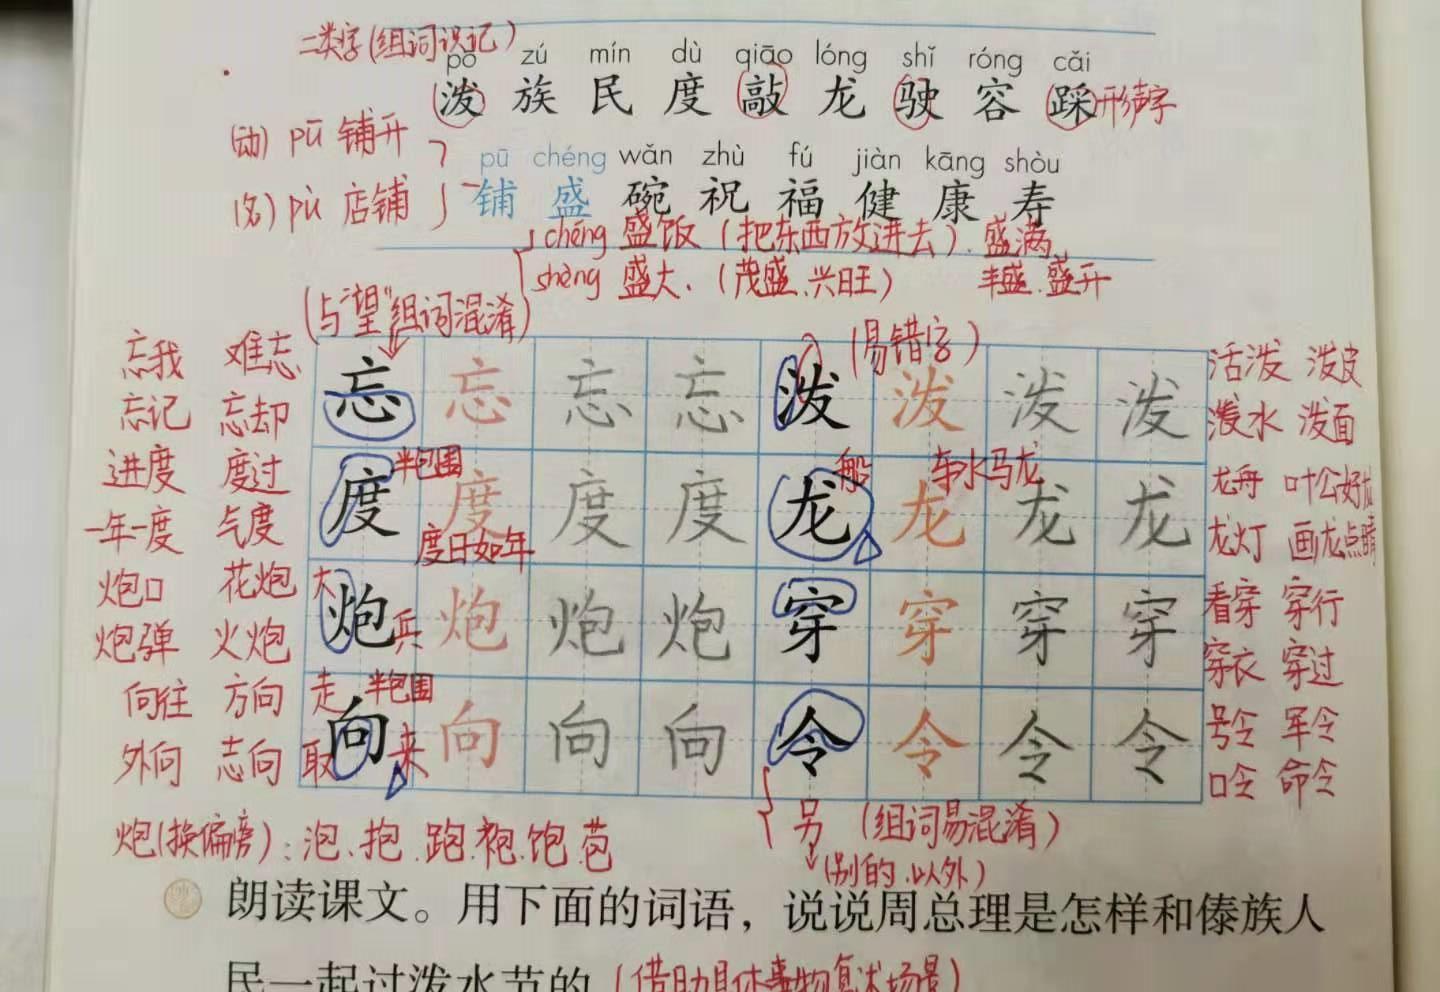 二类字(组词识记)
pō zú mín dù qiāo lóng shǐ róng cǎi
泼 族 民 度 敲 龙 驶 容 踩 形声字
(动) pū 铺开
pū chéng wǎn zhù fú jiàn kāng shòu
(名) pù 店铺 铺 盛 碗 祝 福 健 康 寿
chéng 盛饭(把东西放进去).盛满
shèng 盛大.(茂盛、兴旺) 丰盛.盛开
(与"望"组词混淆) (易错字)
忘我 难忘 忘 忘 忘 忘 泼 泼 泼 泼 活泼 泼皮
忘记 忘却 泼水 泼面
进度 度过 半包围 般 车水马龙 龙舟 叶公好龙
度 度 度 度 龙 龙 龙 龙
一年一度 气度 度日如年 龙灯 画龙点睛
炮口 花炮 大 看穿 穿行
炮 炮 炮 炮 穿 穿 穿 穿
炮弹 火炮 兵 穿衣 穿过
向往 方向 走 半包围 号令 军令
向 向 向 向 令 令 令 令
外向 志向 取 来 口令 命令
炮(换偏旁):泡、抱.跑.袍.饱.苞 另 (组词易混淆)
(别的.以外)
朗读课文。用下面的词语，说说周总理是怎样和傣族人
民一起过泼水节的 (借助具体事物复述场景)